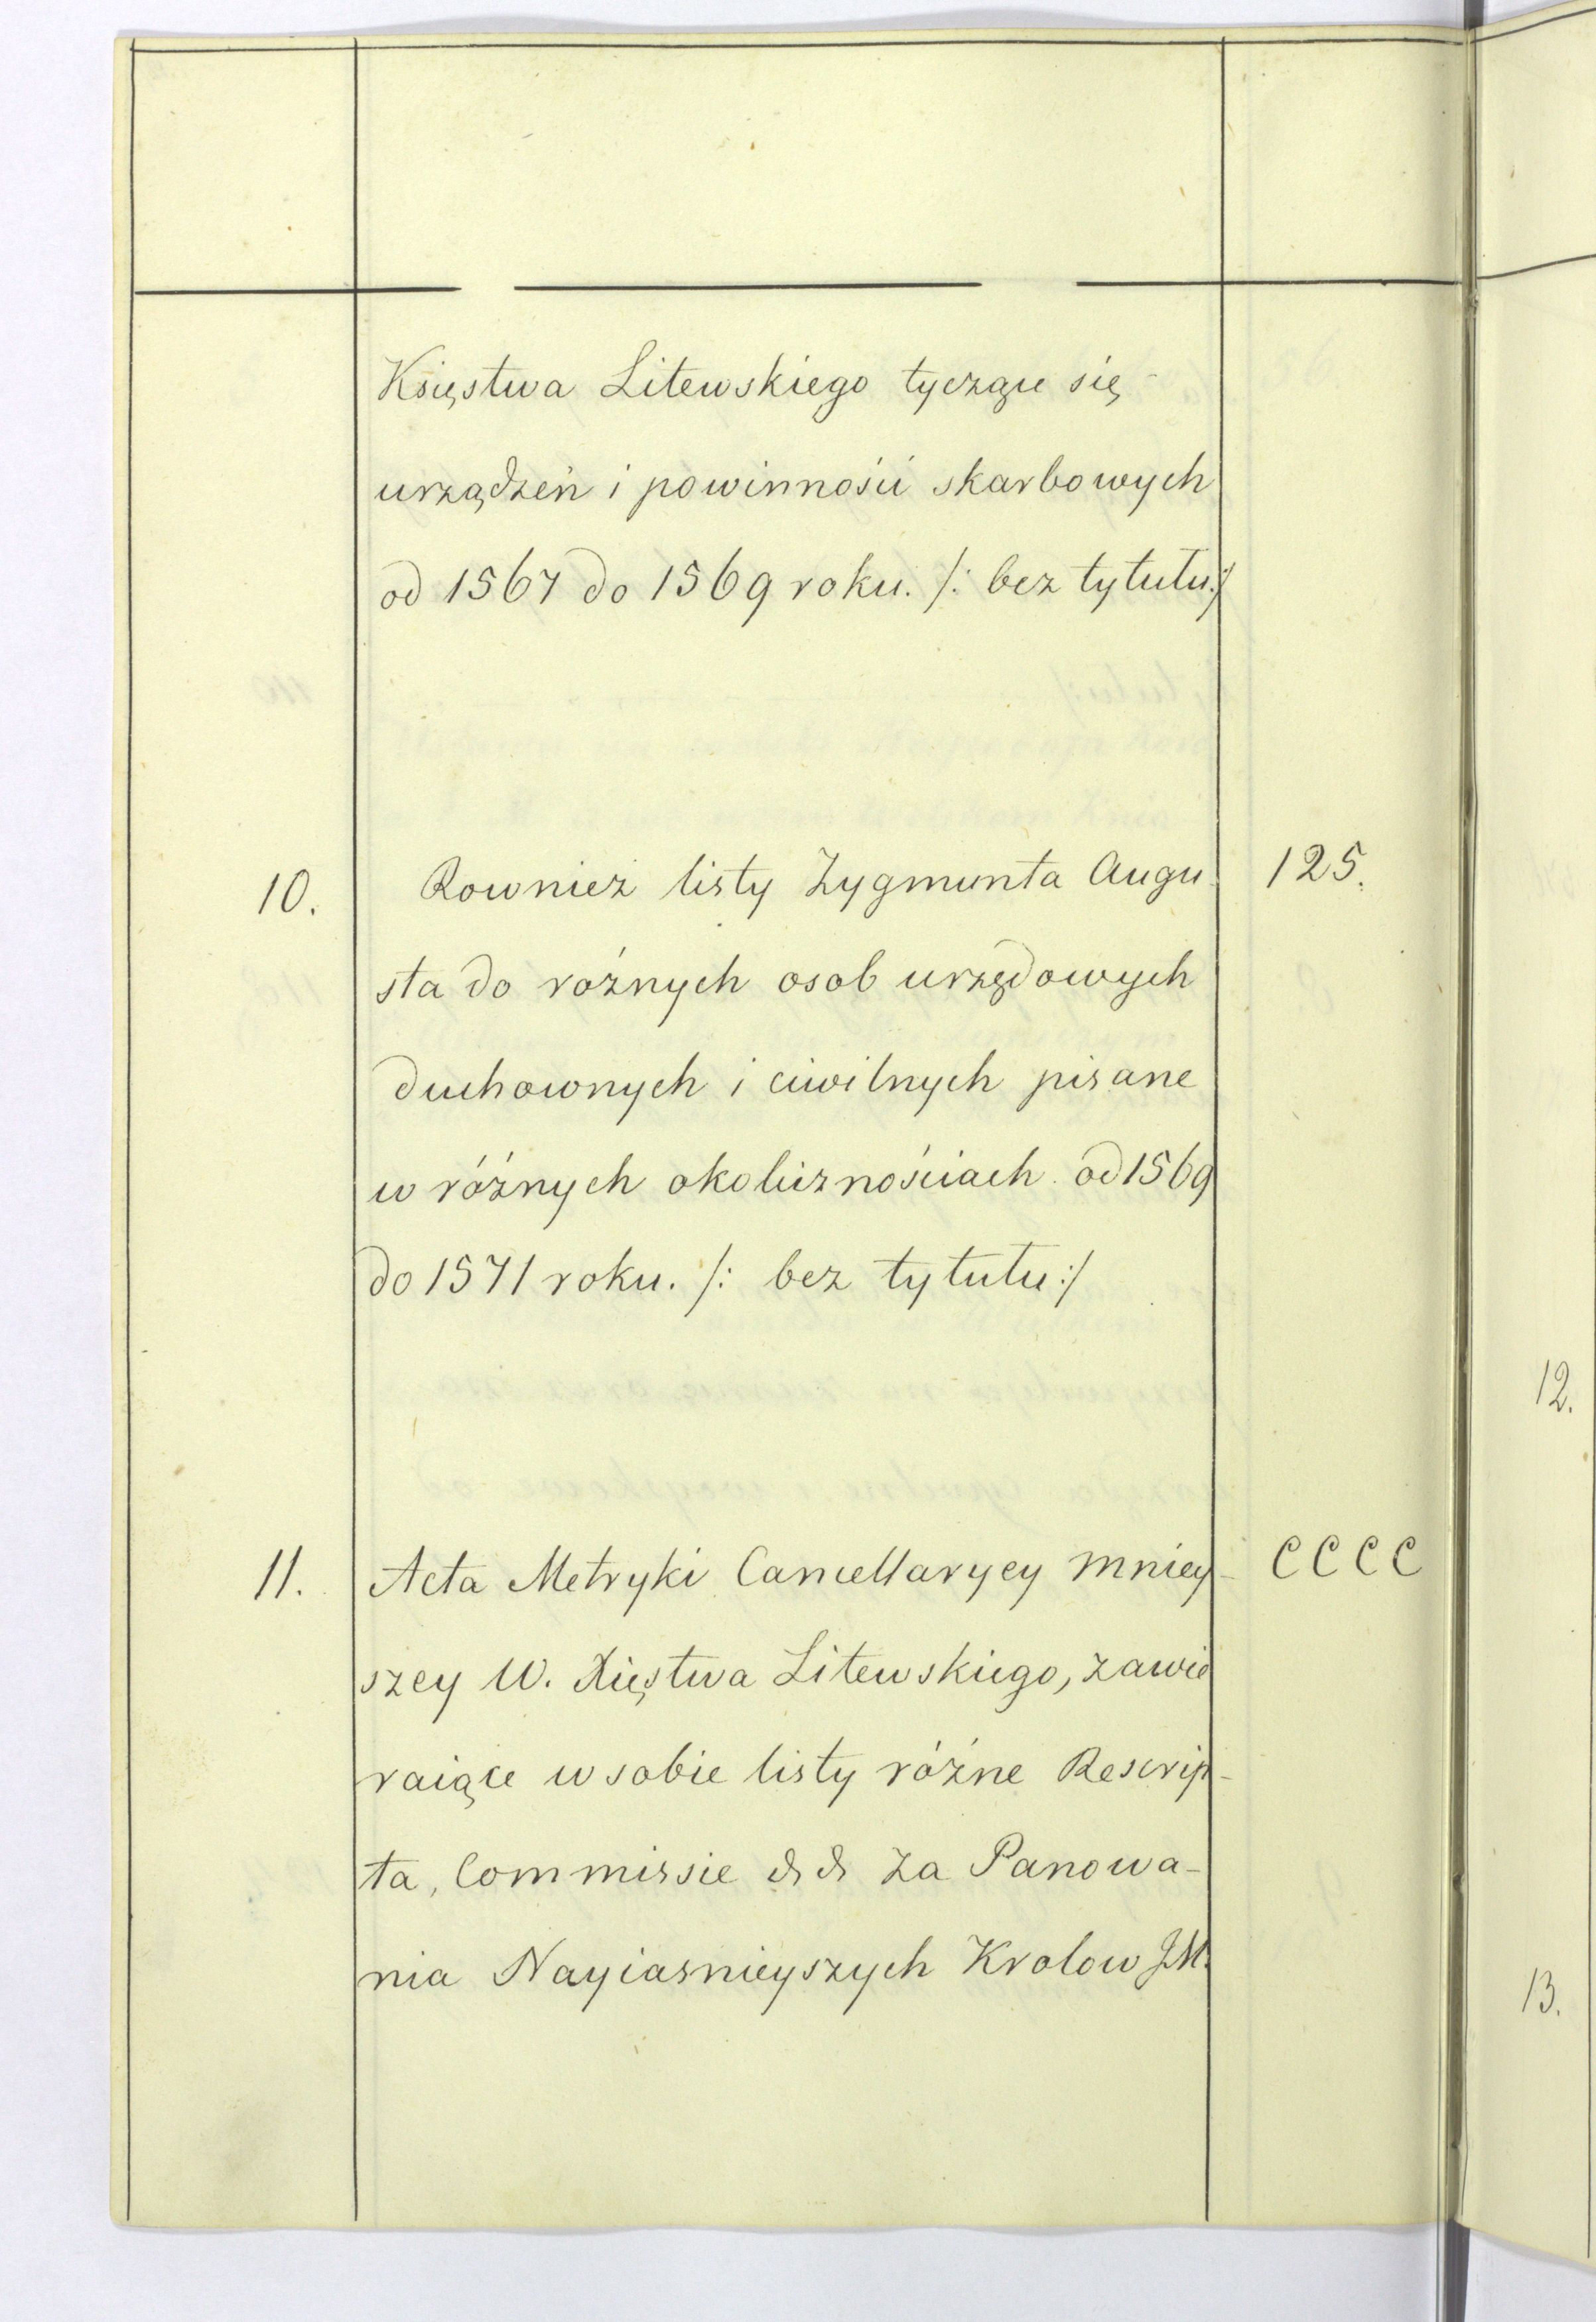 Księstwa Litewskiego tyczące się
urządzeń i powinności skarbowych
od 1567 do 1569 roku. /: bez tytułu:/
10. Rownież listy Zygmunta Augu 125.
sta do rożnych osob urzędowych
duchownych i ciwilnych pisane
w różnych okolicznościach od 1569
do 1571 roku. /: bez tytułu:/
11. Acta Metryki Cancellaryey mniey- CCCC
szey W. Xięstwa Litewskiego, zawie
raiące w sobie listy różne Rescrip-
ta, Commissie & & za Panowa-
nia Nayiasnieyszych Krolow JM.
12.
13.